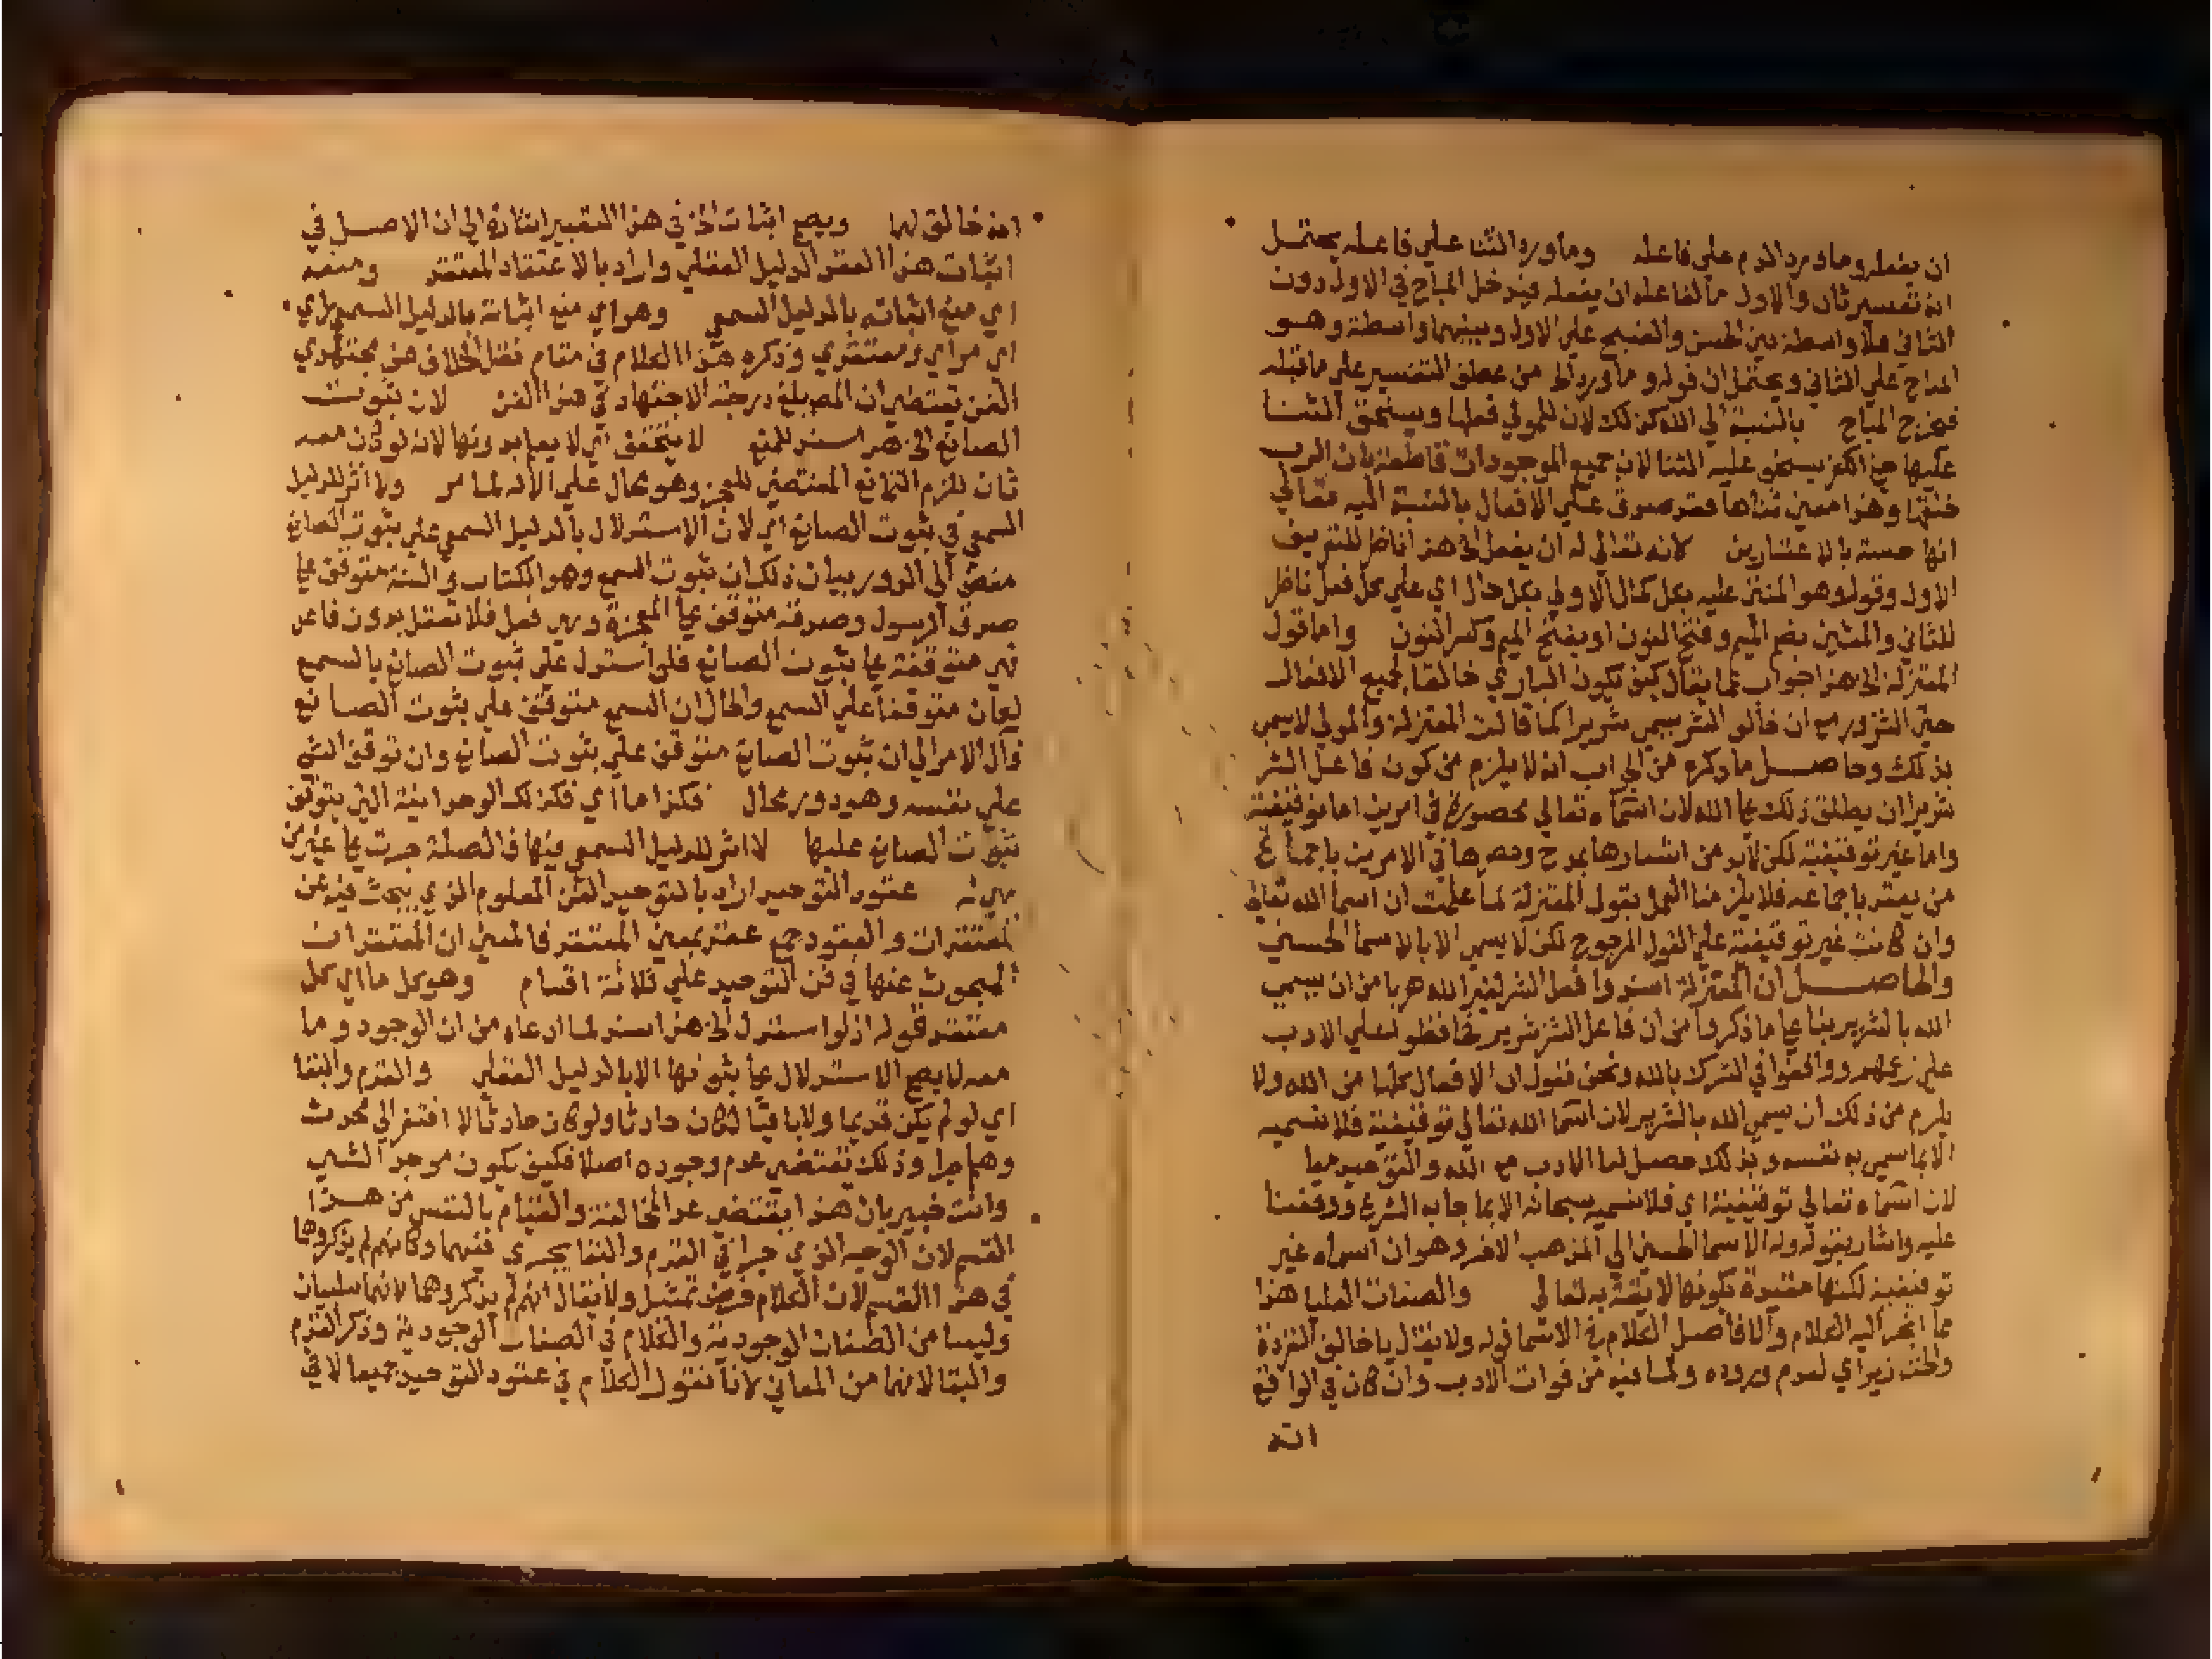 ان يفعله وما ورد الذم علي فاعله وما ورد الثنا علي فاعله يحتمل
انه تفسير ثان والاول ما لفاعله ان يفعله فيدخل المباح في الاول دون
الثاني فلا واسطة بين الحسن والقبيح علي الاول وبينهما واسطة وهو
المباح علي الثاني ويحتمل ان قوله وما ورد الخ من عطف التفسير علي ما قبله
فيخرج المباح بالنسبة الي الله كذلك لان للمولي فعلها ويستحق الثنا
عليها حتي الكفر يستحق عليه الثنا لان جميع الموجودات قاطعة بان الرب
خلقها وهذا معني ثناها فقد صدق علي الافعال بالنسبة اليه تعالي
انها حسنة بالاعتبارين لانه تعالي له ان يفعل الخ هذا ناظر للتعريف
الاول وقوله وهو المثني عليه بكل كمال الاولي بكل حال اي علي كل فعل ناظر
للثاني والمثني بضم الميم وفتح النون او بفتح الميم وكسر النون واما قول
المعتزلة الخ هذا جواب عما يقال كيف يكون الباري خالقا لجميع الافعال
حتي الشرور مع ان خالق الشر يسمي شريرا كما قالت المعتزلة والمولي لا يسمي
بذلك وحاصل ما ذكره من الجواب انه لا يلزم من كون فاعل الشر
شريرا ان يطلق ذلك علي الله لان اسماءه تعالي محصورة في امرين اما توقيفية
واما غير توقيفية لكن لابد من اشعارها بمدح وحصرها في الامرين باجماع
من يعتد باجماعه فلا يلزمنا العمل بقول المعتزلة لما علمت ان اسما الله تعالي
وان كانت غير توقيفية علي القول المرجوح لكن لا يسمي الا بالاسما الحسني
والحاصل ان المعتزلة اسندوا فعل الشر لغير الله هربا من ان يسمي
الله بالشرير بنا علي ما ذكروا من ان فاعل الشر شرير فحافظوا علي الادب
علي زعمهم ووقعوا في الشرك بالله ونحن نقول ان الافعال كلها من الله ولا
يلزم من ذلك ان يسمي الله بالشرير لان اسما الله تعالي توقيفية فلا نسميه
الا بما سمي به نفسه وبذلك حصل لنا الادب مع الله والتوحيد معا
لان اسماءه تعالي توقيفية اي فلا نسميه سبحانه الا بما جا به الشرع ووقفنا
عليه واشار بقوله وله الاسما الحسني الي المذهب الاخر وهو ان اسماءه غير
توقيفية لكنها مقيدة بكونها لائقة به تعالي والصفات العليا هذا
مما انجر اليه الكلام والا فاصل الكلام في الاسما قوله ولا يقال يا خالق القردة
والخنازير اي لعدم وروده ولما فيه من فوات الادب وان كان في الواقع
انه
انه خالق لها ويصح اثبات الخ في هذا التعبير اشارة الي ان الاصل في
اثبات هذا العقد الدليل العقلي واراد بالاعتقاد المعتقد ومنعه
اي منع اثباته بالدليل السمعي وهو اي منع اثباته بالدليل السمعي راي
اي من راي ومعتقدي وذكره هذا الكلام في مقام نقل الخلاف عن مجتهدي
الفن يقتضي ان المص بلغ درجة الاجتهاد في هذا الفن لان ثبوت
الصانع الخ هذا سند للمنع لا يتحقق اي لا يعلم بدونها لانه لو كان معه
ثان للزم التمانع المقتضي للعجز وهو محال علي الاله لما مر ولا اثر للدليل
السمعي في ثبوت الصانع اي لان الاستدلال بالدليل السمعي علي ثبوت الصانع
مفض الي الدور بيان ذلك ان ثبوت السمع وهو الكتاب والسنة متوقف علي
صدق الرسول وصدقه متوقف علي المعجزة وهي فعل فلا تعقل بدون فاعل
فهي متوقفة علي ثبوت الصانع فلو استدل علي ثبوت الصانع بالسمع
لكان متوقفا علي السمع والحال ان السمع متوقف علي ثبوت الصانع
فآل الامر الي ان ثبوت الصانع متوقف علي ثبوت الصانع وان توقف الشي
علي نفسه وهو دور محال فكذا ما اي فكذلك الوحدانية التي يتوقف
ثبوت الصانع عليها لا اثر للدليل السمعي فيها فالصلة جرت علي غير من
هي له عقود التوحيد اراد بالتوحيد الفن المعلوم الذي يبحث فيه عن
المعتقدات والعقود جمع عقد بمعني المعتقد فالمعني ان المعتقدات
المبحوث عنها في فن التوحيد علي ثلاثة اقسام وهو كل ما اي كل
معتقد قوله اذ لو استدل الخ هذا سند لما ادعاه من ان الوجود وما
معه لا يصح الاستدلال علي ثبوتها الا بالدليل العقلي والقدم والبقا
اي لو لم يكن قديما ولا باقيا لكان حادثا ولو كان حادثا لافتقر الي محدث
وهلم جرا وذلك يقتضي عدم وجوده اصلا فكيف يكون موجد الشي
وانت خبير بان هذا يقتضي عد المخالفة والقيام بالنفس من هذا
القسم لان الوجه الذي جرا في القدم والبقا يجري فيهما وكانهم لم يذكروها
في هذا القسم لان الكلام فرض تمثيل ولا يقال انهم لم يذكروهما لانهما سلبيان
وليسا من الصفات الوجودية والكلام في الصفات الوجودية وذكر القدم
والبقا لانهما من المعاني لانا نقول الكلام في عقود التوحيد جميعا لا في